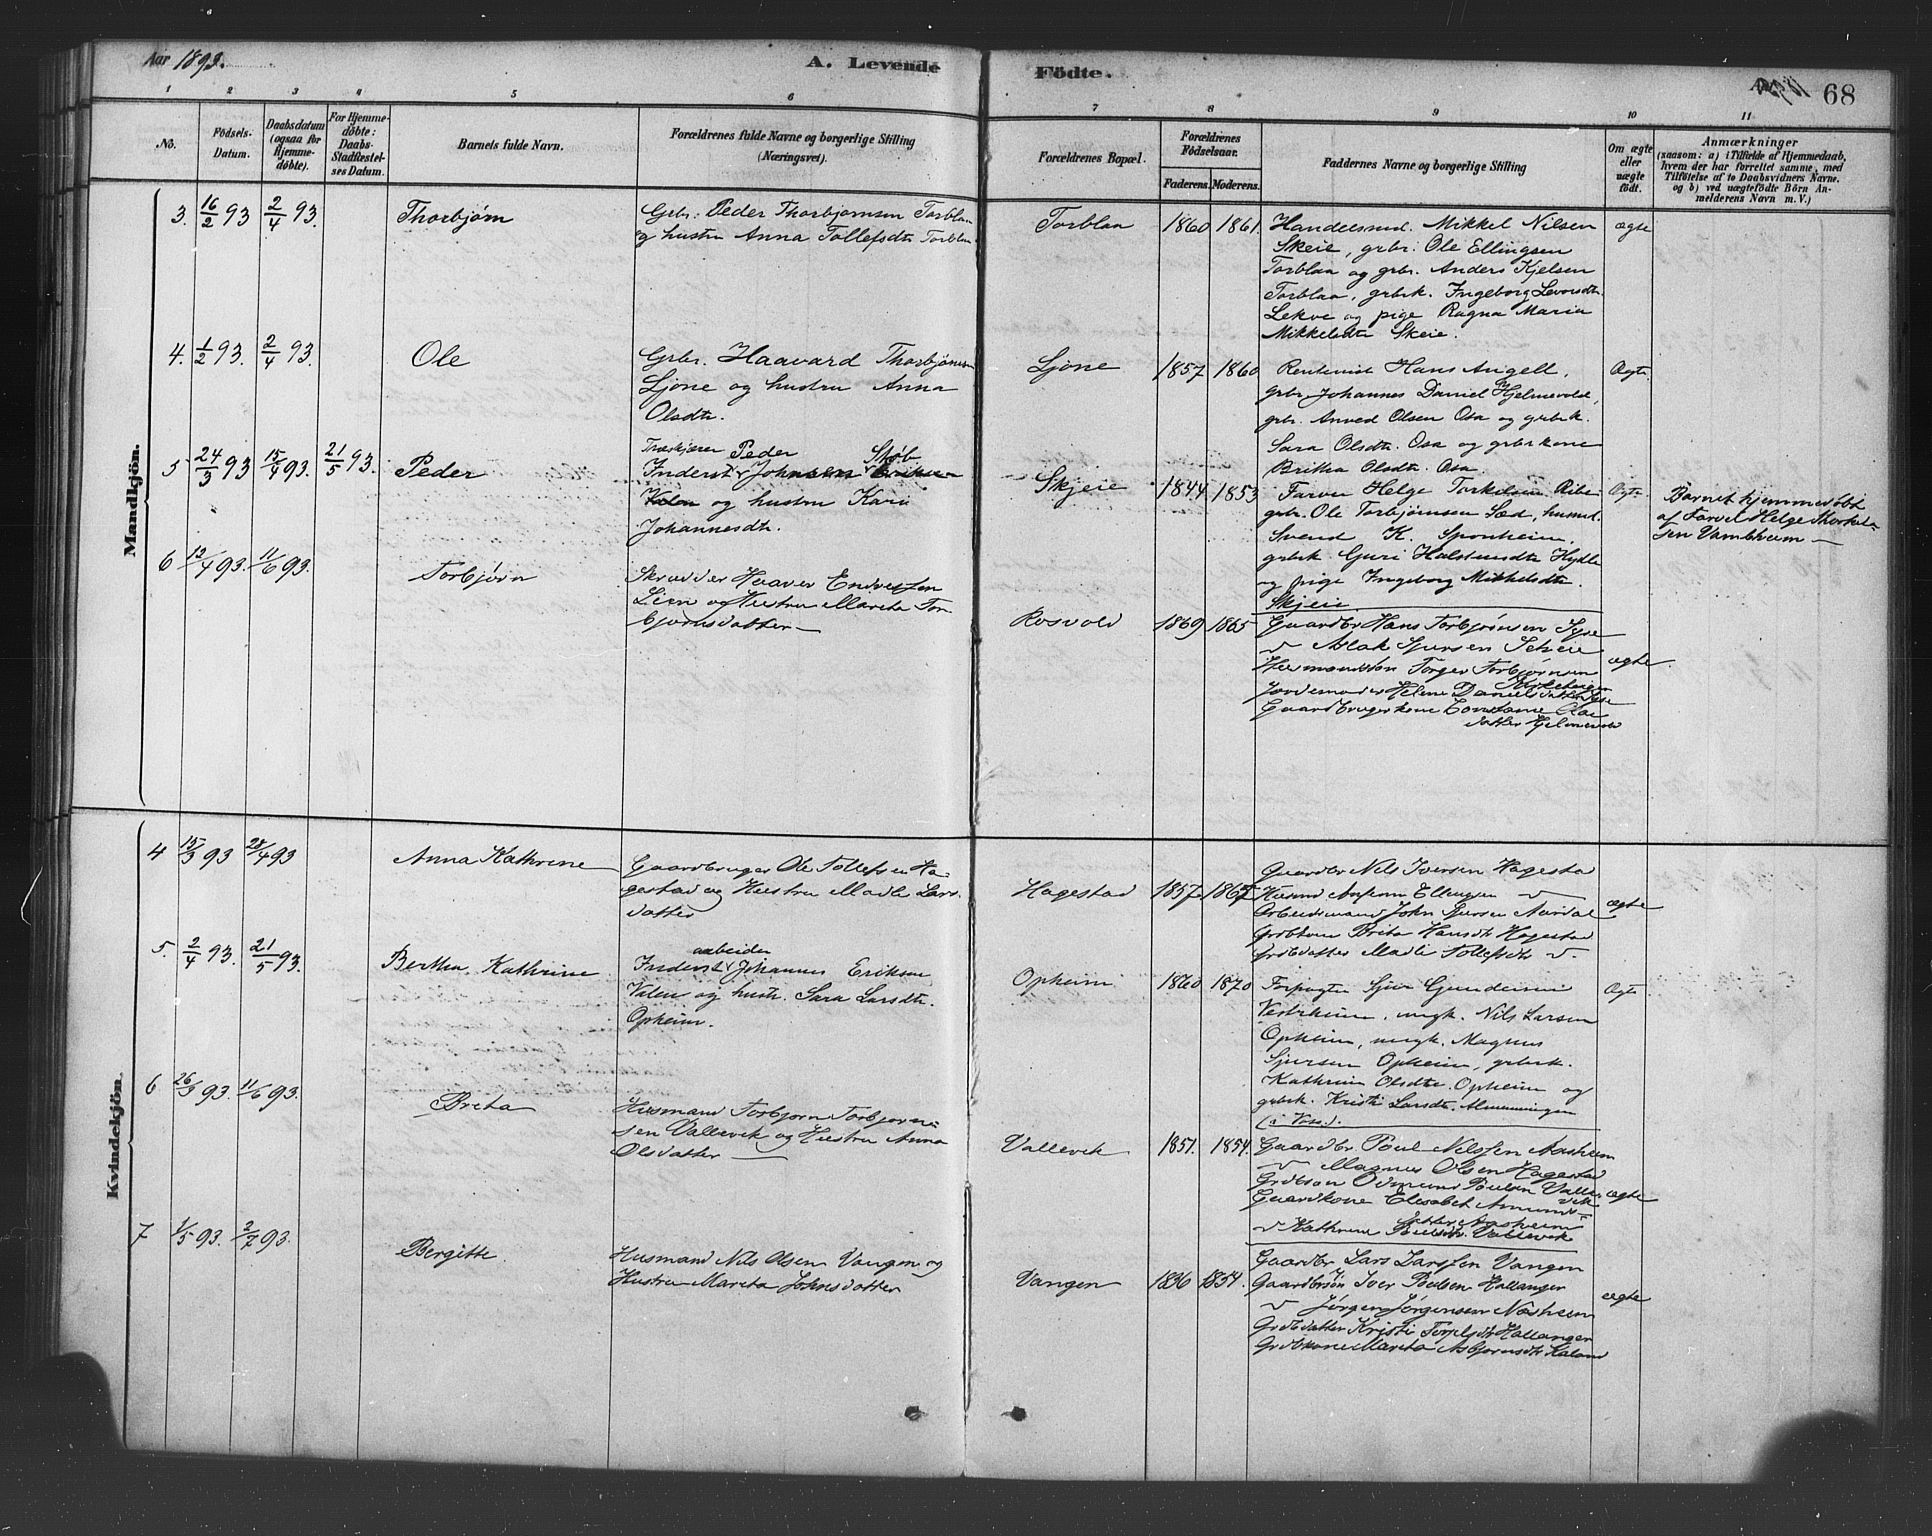 Aar 1893.
A. Levende
Födte.
68
1 2 3 4 5 6 7 8 9 10 11
No.
Födsels-
Datum.
Daabsdatum
(ogsaa for
Hjemme-
döbte).
For Hjemme-
döbte:
Daabs-
Stadfæstel-
ses Datum.
Barnets fulde Navn.
Forældrenes fulde Navne og borgerlige Stilling
(Næringsvei).
Forældrenes Bopæl.
Forældrenes
Födselsaar.
Faderens. Moderens.
Faddernes Navne og borgerlige Stilling
Om ægte
eller
uægte
födt.
Anmærkninger
(saasom: a) i Tilfælde af Hjemmedaab,
hvem der har forrettet samme, med
Tilföielse af to Daabsvidners Navne.
og b) ved uægtefödte Börn An-
melderens Navn m. V.)
Mandkjön.
3. 16/2 93 2/4 93. Thorbjørn
Grbr. Peder Thorbjørnsen Torblaa
og hustru Anna Tollefsdtr Torblaa
Torblaa 1860 1861.
Handelsmd. Mikkel Nilsen
Skeie, grbr. Ole Ellingsen
Torblaa og grbr. Anders Kjelsen
Torblaa, grbrk. Ingeborg Levorsdtr.
Lekve og pige Ragna Maria
Mikkelsdtr Skeie.
ægte
4. 1/2 93. 2/4 93 Ole
Grbr. Haavard Thorbjørnsen
Ljone og hustru Anna
Olsdtr.
Ljone 1857 1860
Rentenist Hans Angell,
grbr. Johannes Daniel Hjelmevolde,
grbr. Anved Olsen Osa og grbrk.
Sara Olsdtr. Osa og grbrkone
Britha Olsdtr. Osa.
Ægte
5 24/3 93 15/4 93. 21/5 93. Peder
Træskjærer Peder Skøb
Inderst Johnsen Eriksen
Valen og hustru Kari
Johannesdtr.
Skjeie 1844 1853
Farver Helge Torkelsen Ribe
grbr. Ole Torbjørnsen Sæd, husmd.
Svend K. Sponheim,
grbrk Guri Halstensdtr Hylle
og pige Ingeborg Mikkelsdtr.
Skjeie.
Ægte
Barnet hjemmedøbt
af Farver Helge Thorkel-
sen Vambheim —
6 12/4 93. 11/6 93. Torbjørn
Skrædder Haaver Endresen
Lien og Hustru Marita Tor-
bjørnsdatter —
Rosvold 1869 1865
Gaardbr Hans Torbjørnsen Syse
— Aslak Sjursen Skeie
Husmandssøn Torger Torbjørnsen
Kirkebergen
Jordemoder Helene Danielsdatter Syse
Gaardbrugerkone Constanse Olsdatter Hjelmevold
ægte
Kvindekjön.
4 15/3 93 28/4 93 Anna Kathrine
Gaardbruger Ole Tollefsen Ha-
gestad og Hustru Madli Lars-
datter
Hagestad 1857 1867
Gaardbr Nils Iversen Hagestad
Husmd Ellingsen —
Arbeidsmand John Sjursen Aardal
Grdbkone Brita Hansdtr Hagestad
Grdbdatter Madli Tollefsdtr —
ægte
5. 2/4 93. 21/5 93. Bertha Kathrine
arbeider
Inderst Johannes Eriksen
Valen og hustr. Sara Larsdtr.
Opheim.
Opheim 1860 1870
Forpagter Sjur Gundersen
Vestrheim, ungk. Nils Larsen
Opheim, ungk. Magnus
Sjursen Opheim, grbrk.
Kathrina Olsdtr. Opheim og
grbrk. Kristi Larsdtr. Almenningen
(i Voss).
Ægte
6 26/3 93. 11/6 93. Brita
Husmand Torbjørn Torbjørn-
sen Vallevik og Hustru Anna
Olsdatter —
Vallevik 1851. 1854.
Gaardbr Poul Nilssen Aasheim
— Magnus Olsen Hagestad
Grdbsøn Odmund Poulsen Vallevik
Gaardkone Elisabet Amunds-
datter Aasheim
— Kathrine Poulsdtr. Vallevik
ægte
7 1/5 93. 2/7 93. Bergitte
Husmand Nils Olsen Vangen og
Hustru Marita Johnsdatter
Vangen 1836 1854.
Gaardbr Lars Larssen Vangen
Gaardbrsøn Iver Poulsen Hallanger
— Jørgen Jørgensen Næsheim
Grdbdatter Kristi Torfinsdtr Hallanger
Grdbkone Marita Asbjørnsdtr Kaland
ægte